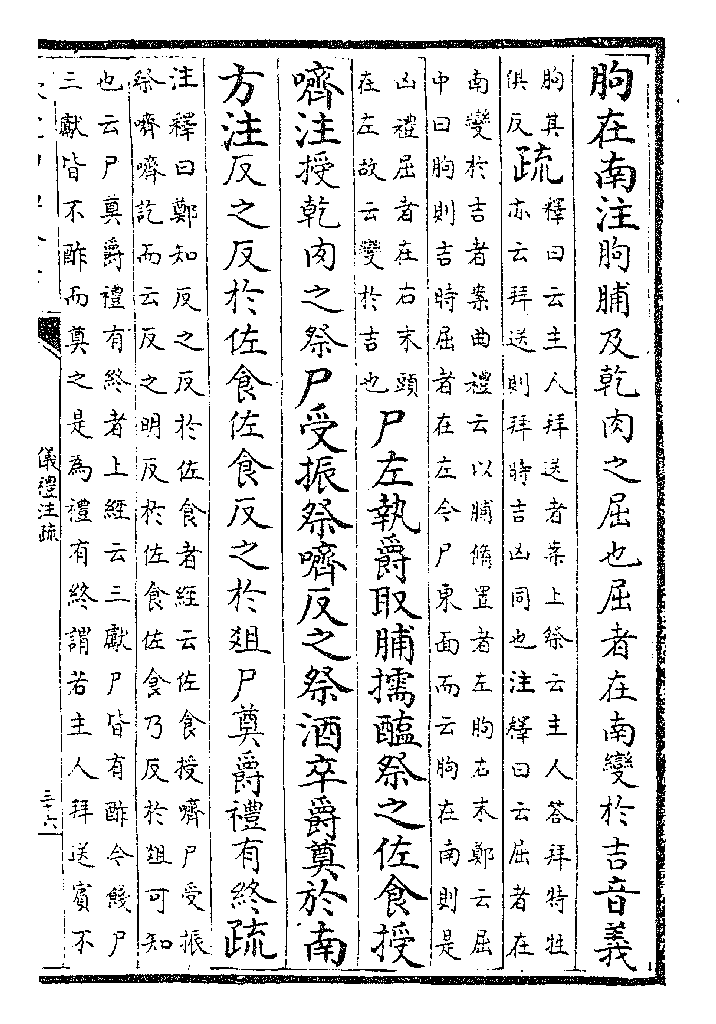 朐在南注朐脯及乾肉之屈也屈者在南變於吉音義
朐其
俱反
疏
釋曰云主人拜送者案上祭云主人答拜特牲
亦云拜送則拜時吉凶同也注釋曰云屈者在
南變於吉者案曲禮云以脯脩置者左朐右末鄭云屈
中曰朐則吉時屈者在左今尸東面而云朐在南則是
凶禮屈者在右末頭
在左故云變於吉也
尸左執爵取脯擩醢祭之佐食授
嚌注授乾肉之祭尸受振祭嚌反之祭酒卒爵奠於南
方注反之反於佐食佐食反之於俎尸奠爵禮有終疏
注釋曰鄭知反之反於佐食者經云佐食授嚌尸受振
祭嚌嚌訖而云反之明反於佐食佐食乃反於俎可知
也云尸奠爵禮有終者上經云三獻尸皆有酢今餞尸
三獻皆不酢而奠之是為禮有終謂若主人拜送賓不
儀禮注疏
三十六